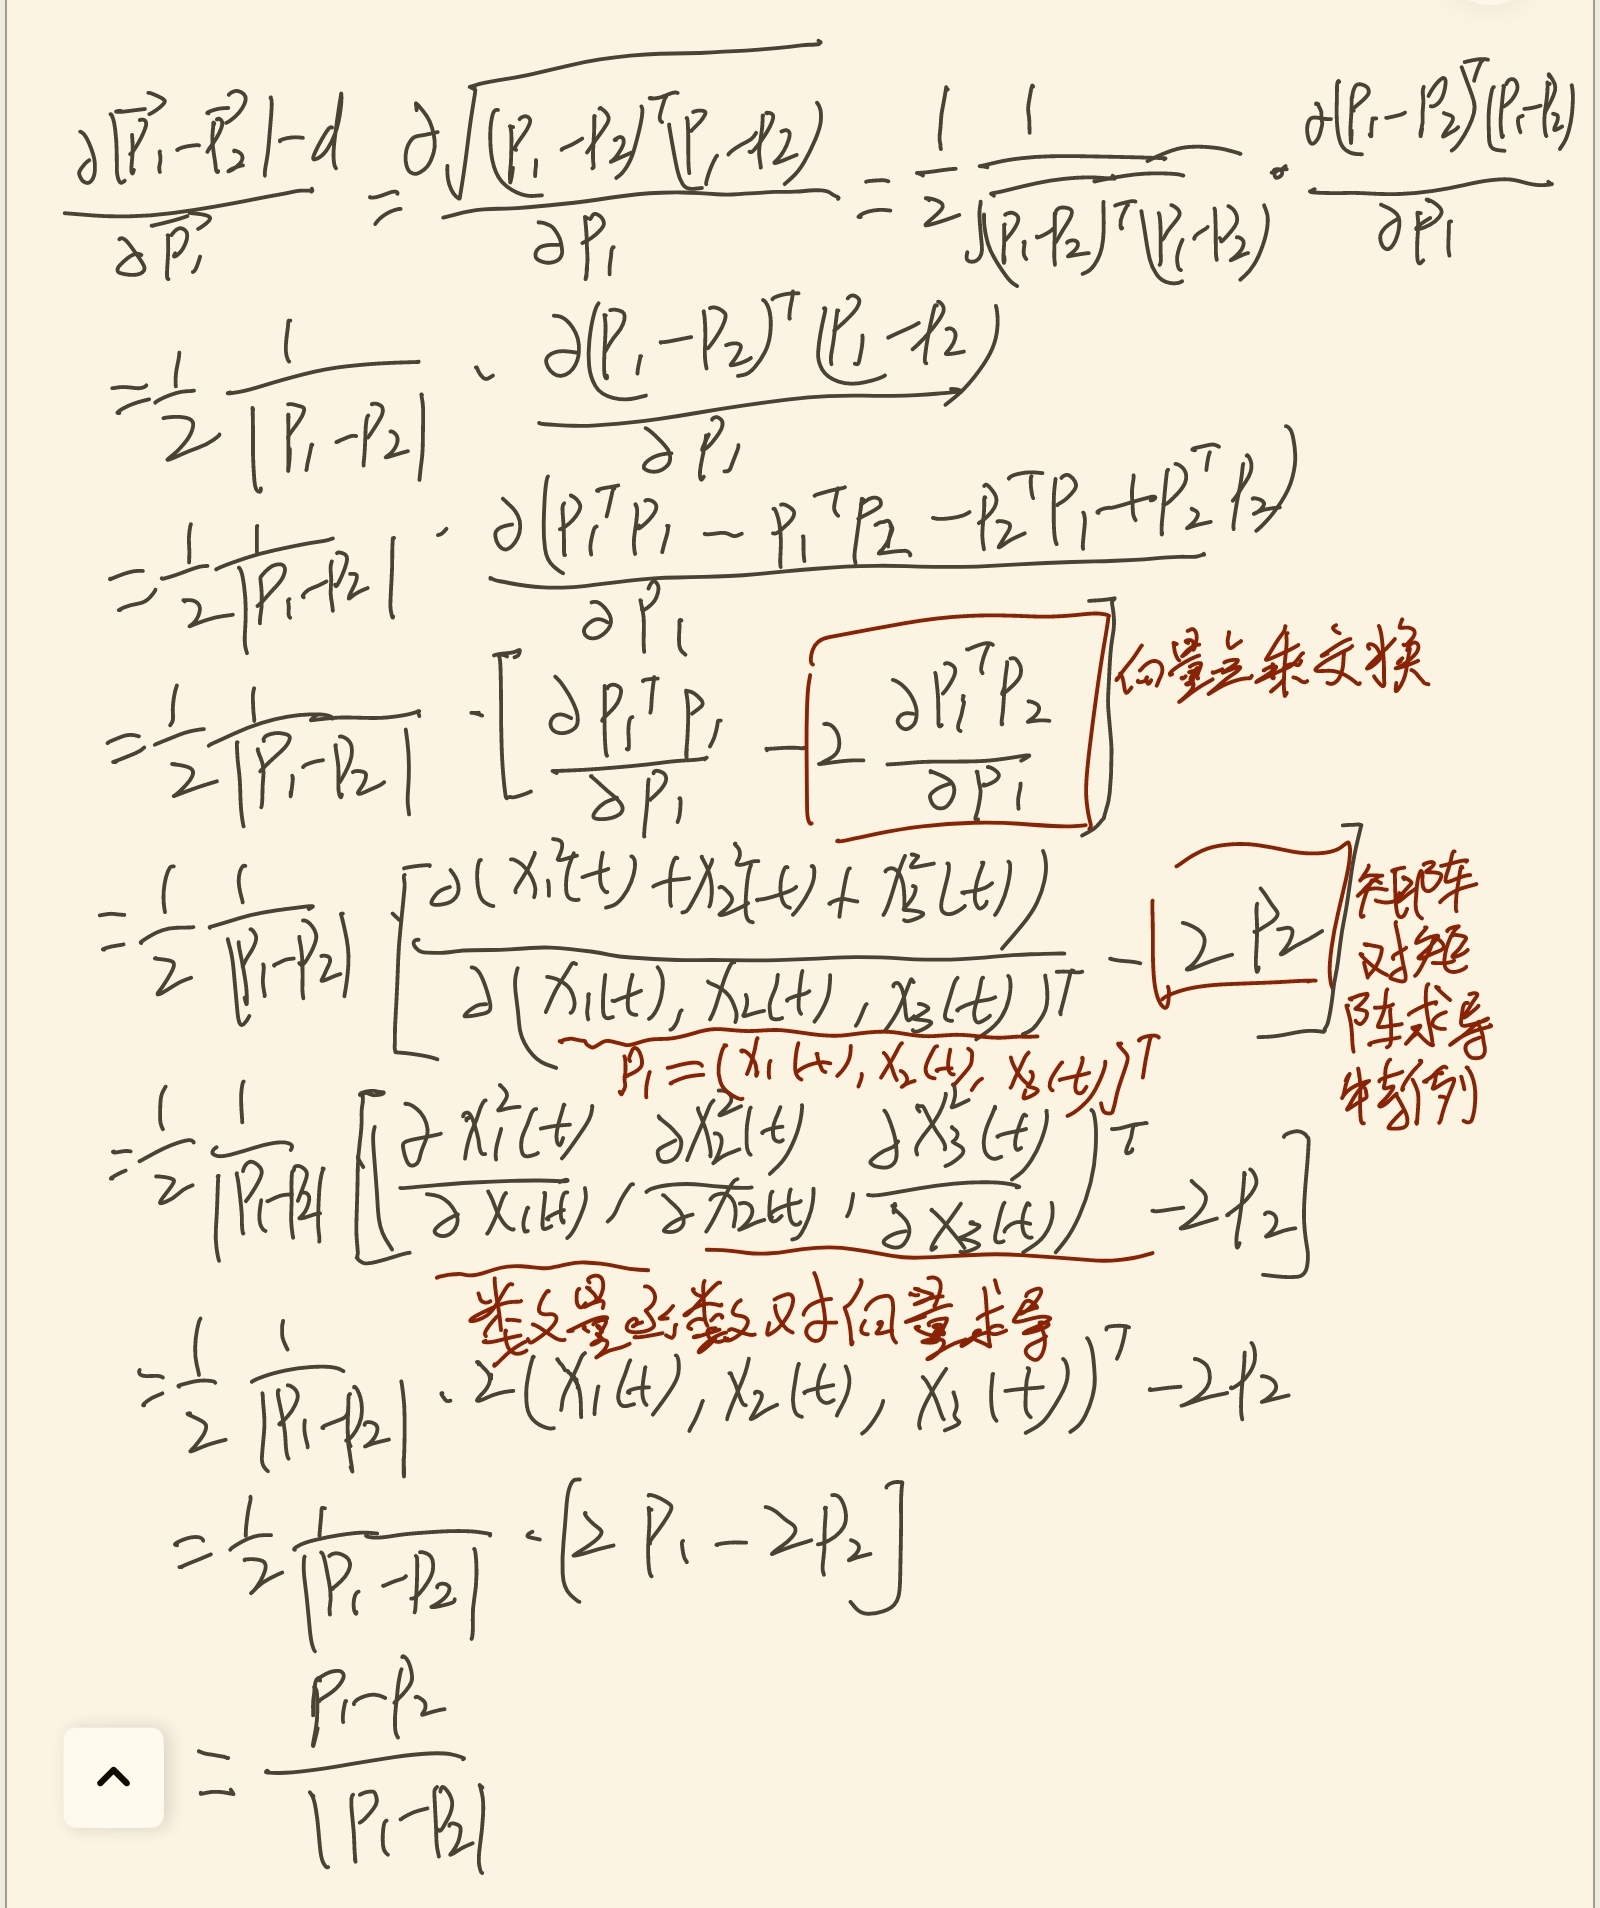 ∂|P⃗₁-P⃗₂|-d / ∂P⃗₁ = ∂√((P₁-P₂)ᵀ(P₁-P₂)) / ∂P₁ = 1/2 · 1/√((P₁-P₂)ᵀ(P₁-P₂)) · ∂(P₁-P₂)ᵀ(P₁-P₂) / ∂P₁
= 1/2 · 1/|P₁-P₂| · ∂(P₁-P₂)ᵀ(P₁-P₂) / ∂P₁
= 1/2 · 1/|P₁-P₂| · ∂(P₁ᵀP₁ - P₁ᵀP₂ - P₂ᵀP₁ + P₂ᵀP₂) / ∂P₁
= 1/2 · 1/|P₁-P₂| · [∂P₁ᵀP₁ / ∂P₁ - 2 ∂P₁ᵀP₂ / ∂P₁] 向量点乘交换
= 1/2 · 1/|P₁-P₂| [∂(X₁²(t)+X₂²(t)+X₃²(t)) / ∂(X₁(t), X₂(t), X₃(t))ᵀ - 2P₂]
矩阵
对矩
阵求导
特例
P₁=(X₁(t), X₂(t), X₃(t))ᵀ
= 1/2 · 1/|P₁-P₂| [(∂X₁²(t)/∂X₁(t), ∂X₂²(t)/∂X₂(t), ∂X₃²(t)/∂X₃(t))ᵀ - 2P₂]
数量函数对向量求导
= 1/2 · 1/|P₁-P₂| · 2(X₁(t), X₂(t), X₃(t))ᵀ - 2P₂
= 1/2 · 1/|P₁-P₂| · [2P₁ - 2P₂]
= P₁-P₂ / |P₁-P₂|